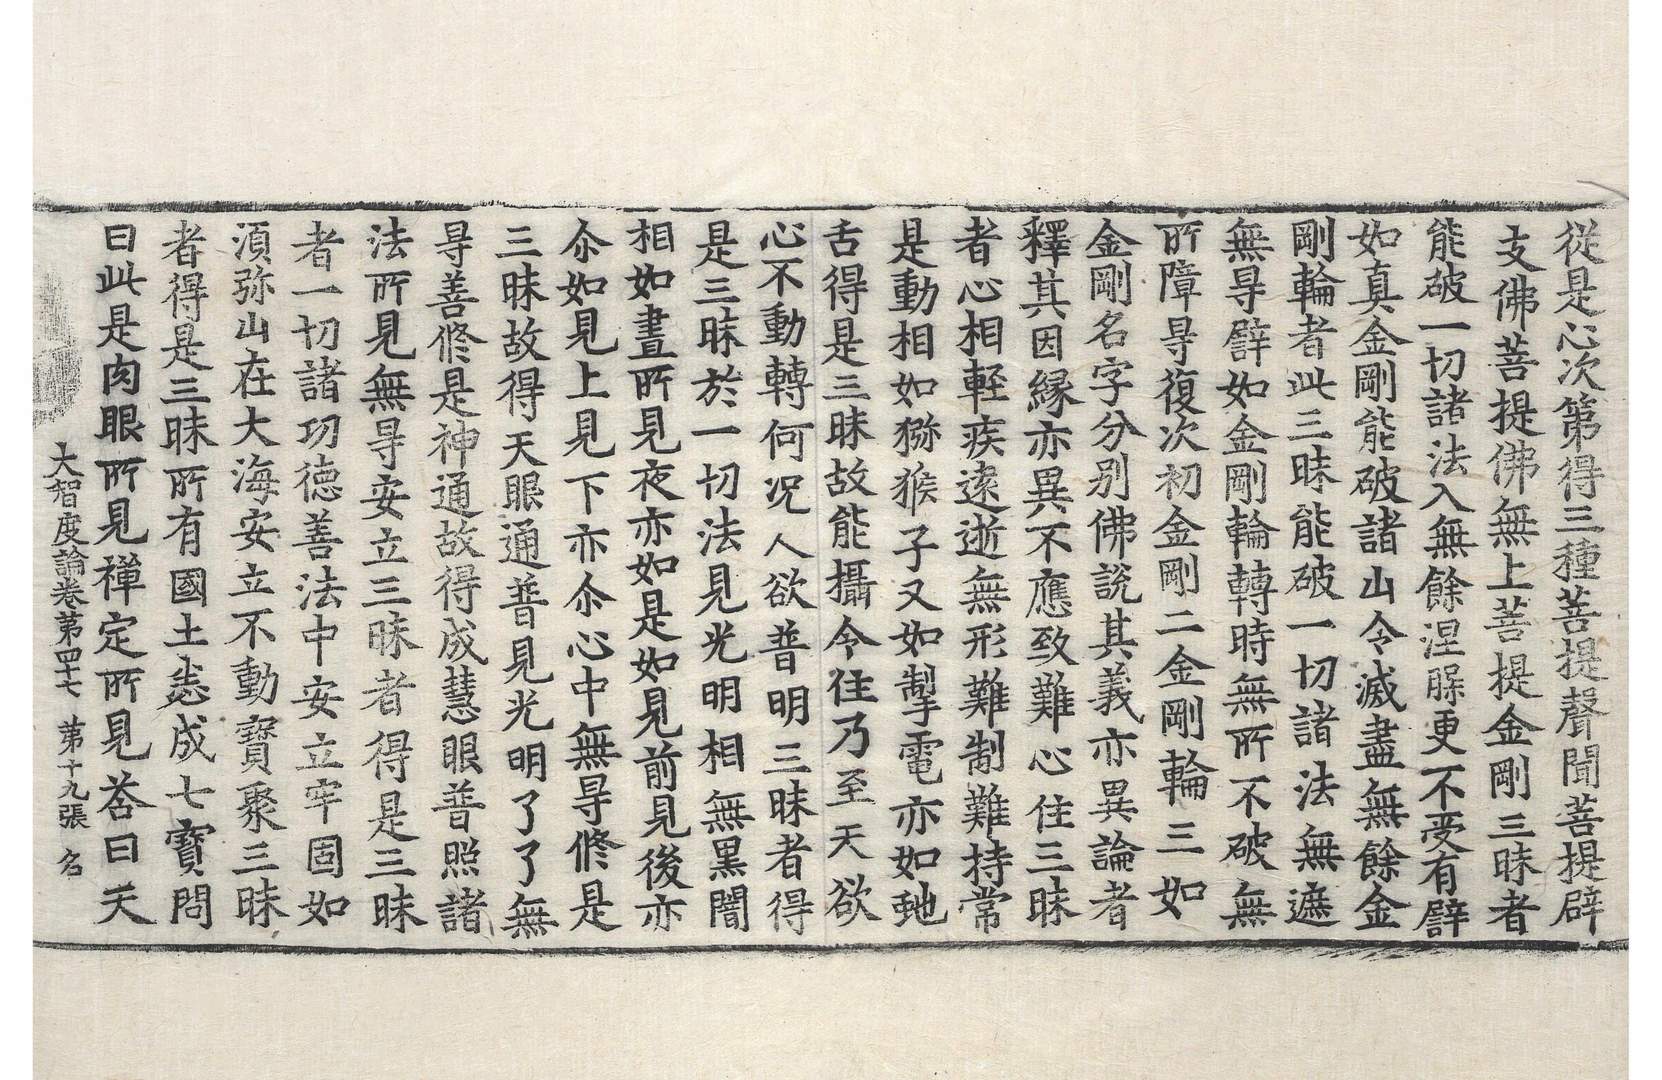 從是心次第得三種菩提聲聞菩提辟
支佛菩提佛無上菩提金剛三昧者
能破一切諸法入無餘涅槃更不受有譬
如真金剛能破諸山令滅盡無餘金
剛輪者此三昧能破一切諸法無遮
無㝵譬如金剛輪轉時無所不破無
所障㝵復次初金剛二金剛輪三如
金剛名字分别佛說其義亦異論者
釋其因緣亦異不應致難心住三昧
者心相輕疾遠逝無形難制難持常
是動相如猕猴子又如掣電亦如虵
舌得是三昧故能攝令住乃至天欲
心不動轉何况人欲普明三昧者得
是三昧於一切法見光明相無黒闇
相如晝所見夜亦如是如見前見後亦
尒如見上見下亦尒心中無㝵修是
三昧故得天眼通普見光明了了無
㝵善修是神通故得成慧眼普照諸
法所見無㝵安立三昧者得是三昧
者一切諸功德善法中安立牢固如
湏弥山在大海安立不動寶聚三昧
者得是三昧所有國土悉成七寶問
曰此是肉眼所見禪定所見荅曰天
大智度論卷第四十七　第十九張　名